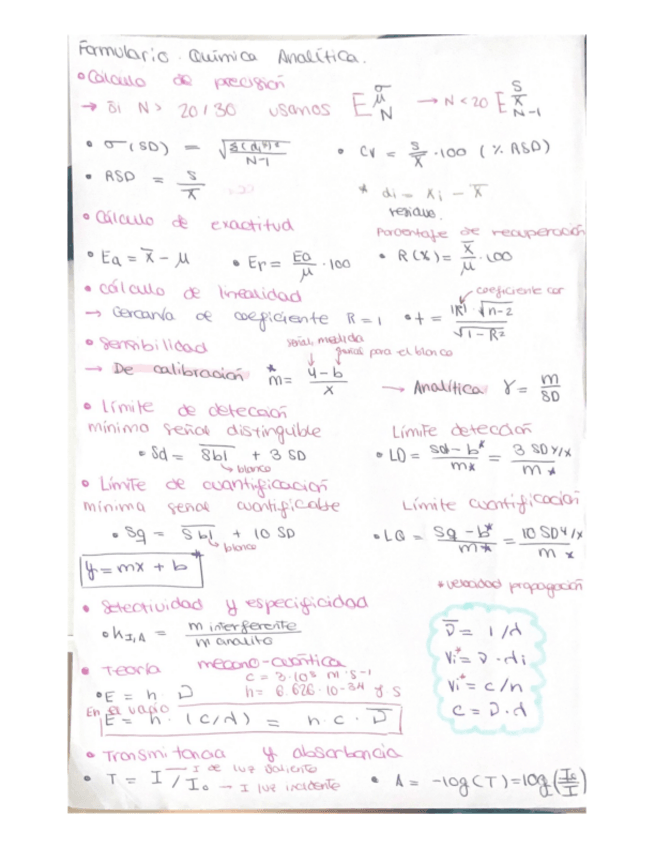 Formulario. Química Analítica.
• Cálculo de precisión
→ Si N > 20/30 usamos E σ μ N → N < 20 E S x̄ N-1
• σ (SD) = √(Σ(di)²/N-1) • CV = s/x̄ · 100 (% RSD)
• RSD = s/x̄ * di = xi - x̄
residuo.
• Cálculo de exactitud Porcentaje de recuperación
• Ea = x̄ - μ • Er = Ea/μ · 100 • R(%) = x̄/μ · 100
• Cálculo de linealidad coeficiente cor
→ Cercanía de coeficiente R = 1 • t = |R| · √n-2 / √1-R²
• Sensibilidad señal medida
para el blanco
→ De calibración *m = y-b/x → Analítica γ = m/SD
• Límite de detección
mínima señal distinguible Límite detección
• Sd = Sbl + 3 SD • LD = Sd - b*/m* = 3 SDy/x / m*
→ blanco
• Límite de cuantificación
mínima señal cuantificable Límite cuantificación
• Sq = Sbl + 10 SD • LQ = Sq - b*/m* = 10 SDy/x / m*
→ blanco
y = mx + b*
* velocidad propagación
• Selectividad y especificidad
• kI,A = m interferente / m analito
ν̄ = 1/λ
Vi* = ν · λi
Vi* = c/n
c = ν · λ
• Teoría mecano-cuántica
c = 3·10⁸ m·s⁻¹
• E = h · ν h = 6.626·10⁻³⁴ J s
En el vacío
E = h · (c/λ) = h · c · ν̄
• Transmitancia y absorbancia
• T = I / I₀ → I de luz saliente • A = -log(T) = log(I₀/I)
→ I luz incidente